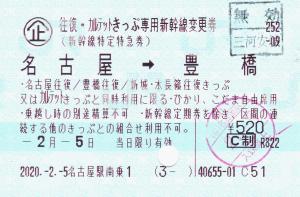 企 往復・カルテットきっぷ専用新幹線変更券
(新幹線特定特急券)
無効
252
三河安-09
名古屋 → 豊橋
・名古屋往復/豊橋往復/新城・本長篠往復きっぷ
又はカルテットきっぷと同時利用に限る・ひかり、こだま自由席用
・乗越し時の別途精算不可 ・新幹線定期券を除き、区間の連
続する他のきっぷとの組合せ利用不可。
¥520
-2月-5日 当日限り有効
C制 R822
2020.-2.-5名古屋駅南乗1 (3- ) 40655-01 C51